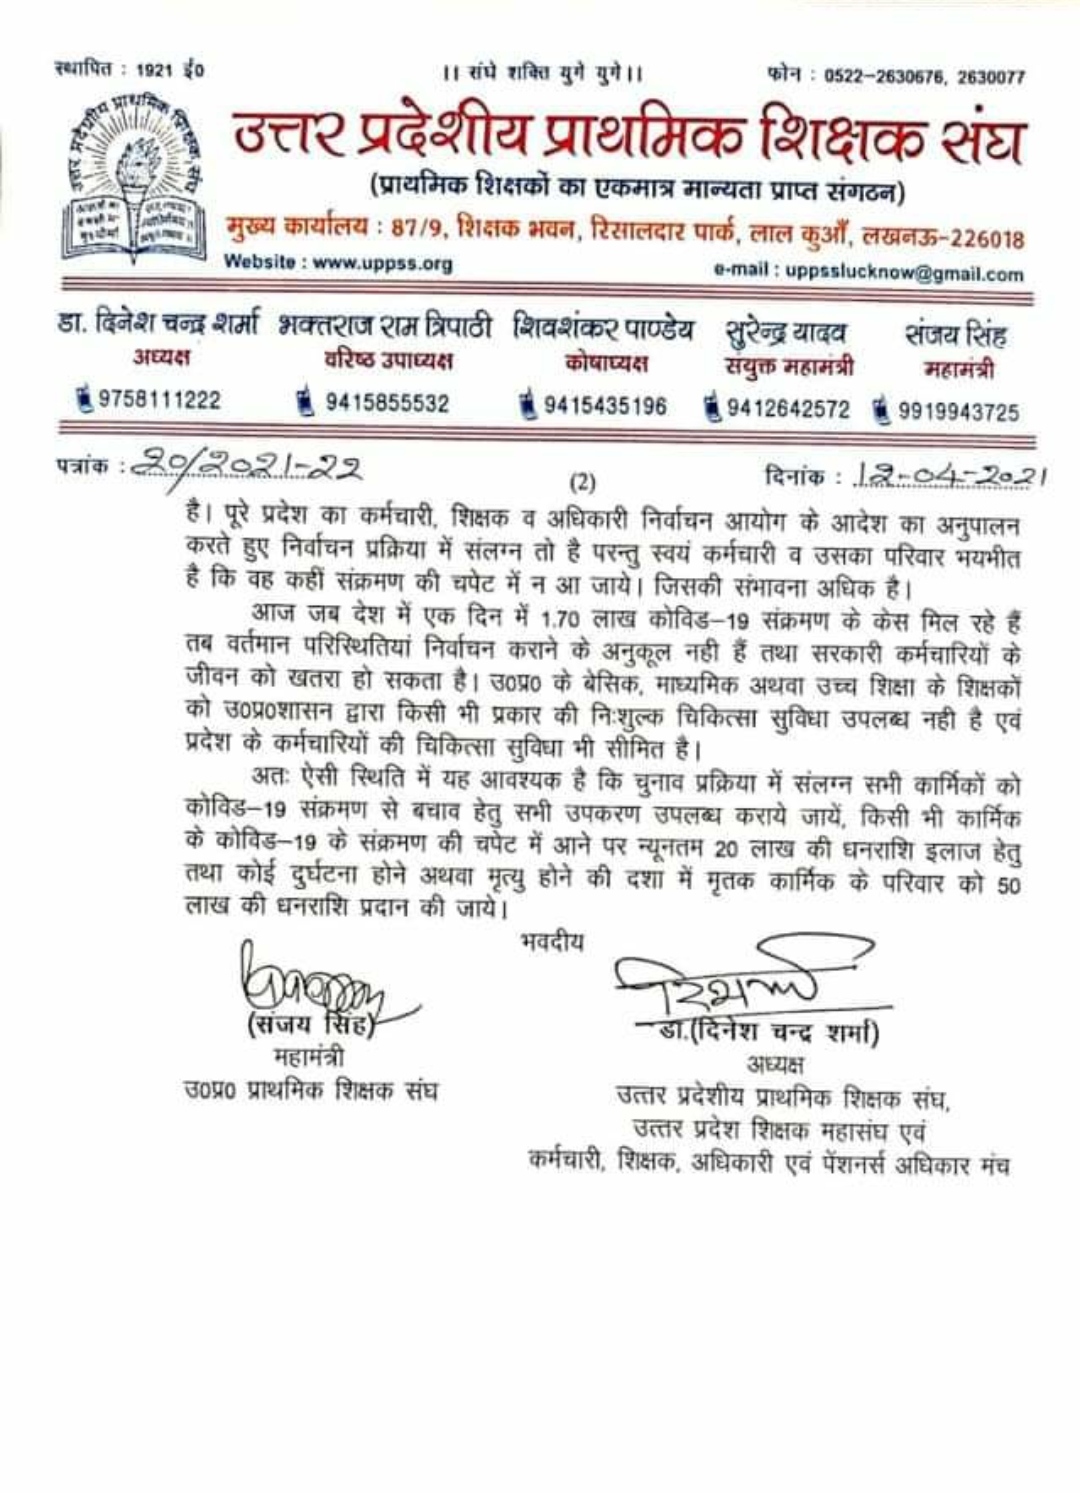 स्थापित : 1921 ई0
।। संघे शक्ति युगे युगे।।
फोन : 0522-2630676, 2630077
उत्तर प्रदेशीय प्राथमिक शिक्षक संघ
उत्तर प्रदेशीय प्राथमिक शिक्षक संघ
(प्राथमिक शिक्षकों का एकमात्र मान्यता प्राप्त संगठन)
मुख्य कार्यालय : 87/9, शिक्षक भवन, रिसालदार पार्क, लाल कुआँ, लखनऊ-226018
Website : www.uppss.org
e-mail : uppsslucknow@gmail.com
डा. दिनेश चन्द्र शर्मा भक्तराज राम त्रिपाठी शिवशंकर पाण्डेय सुरेन्द्र यादव संजय सिंह
अध्यक्ष वरिष्ठ उपाध्यक्ष कोषाध्यक्ष संयुक्त महामंत्री महामंत्री
9758111222 9415855532 9415435196 9412642572 9919943725
पत्रांक : 20/2021-22
(2)
दिनांक : 12-04-2021
है। पूरे प्रदेश का कर्मचारी, शिक्षक व अधिकारी निर्वाचन आयोग के आदेश का अनुपालन
करते हुए निर्वाचन प्रक्रिया में संलग्न तो है परन्तु स्वयं कर्मचारी व उसका परिवार भयभीत
है कि वह कहीं संक्रमण की चपेट में न आ जाये। जिसकी संभावना अधिक है।
आज जब देश में एक दिन में 1.70 लाख कोविड-19 संक्रमण के केस मिल रहे हैं
तब वर्तमान परिस्थितियां निर्वाचन कराने के अनुकूल नही हैं तथा सरकारी कर्मचारियों के
जीवन को खतरा हो सकता है। उ0प्र0 के बेसिक, माध्यमिक अथवा उच्च शिक्षा के शिक्षकों
को उ0प्र0शासन द्वारा किसी भी प्रकार की निःशुल्क चिकित्सा सुविधा उपलब्ध नही है एवं
प्रदेश के कर्मचारियों की चिकित्सा सुविधा भी सीमित है।
अतः ऐसी स्थिति में यह आवश्यक है कि चुनाव प्रक्रिया में संलग्न सभी कार्मिकों को
कोविड-19 संक्रमण से बचाव हेतु सभी उपकरण उपलब्ध कराये जायें, किसी भी कार्मिक
के कोविड-19 के संक्रमण की चपेट में आने पर न्यूनतम 20 लाख की धनराशि इलाज हेतु
तथा कोई दुर्घटना होने अथवा मृत्यु होने की दशा में मृतक कार्मिक के परिवार को 50
लाख की धनराशि प्रदान की जाये।
भवदीय
(संजय सिंह)
महामंत्री
उ0प्र0 प्राथमिक शिक्षक संघ
डा.(दिनेश चन्द्र शर्मा)
अध्यक्ष
उत्तर प्रदेशीय प्राथमिक शिक्षक संघ,
उत्तर प्रदेश शिक्षक महासंघ एवं
कर्मचारी, शिक्षक, अधिकारी एवं पेंशनर्स अधिकार मंच